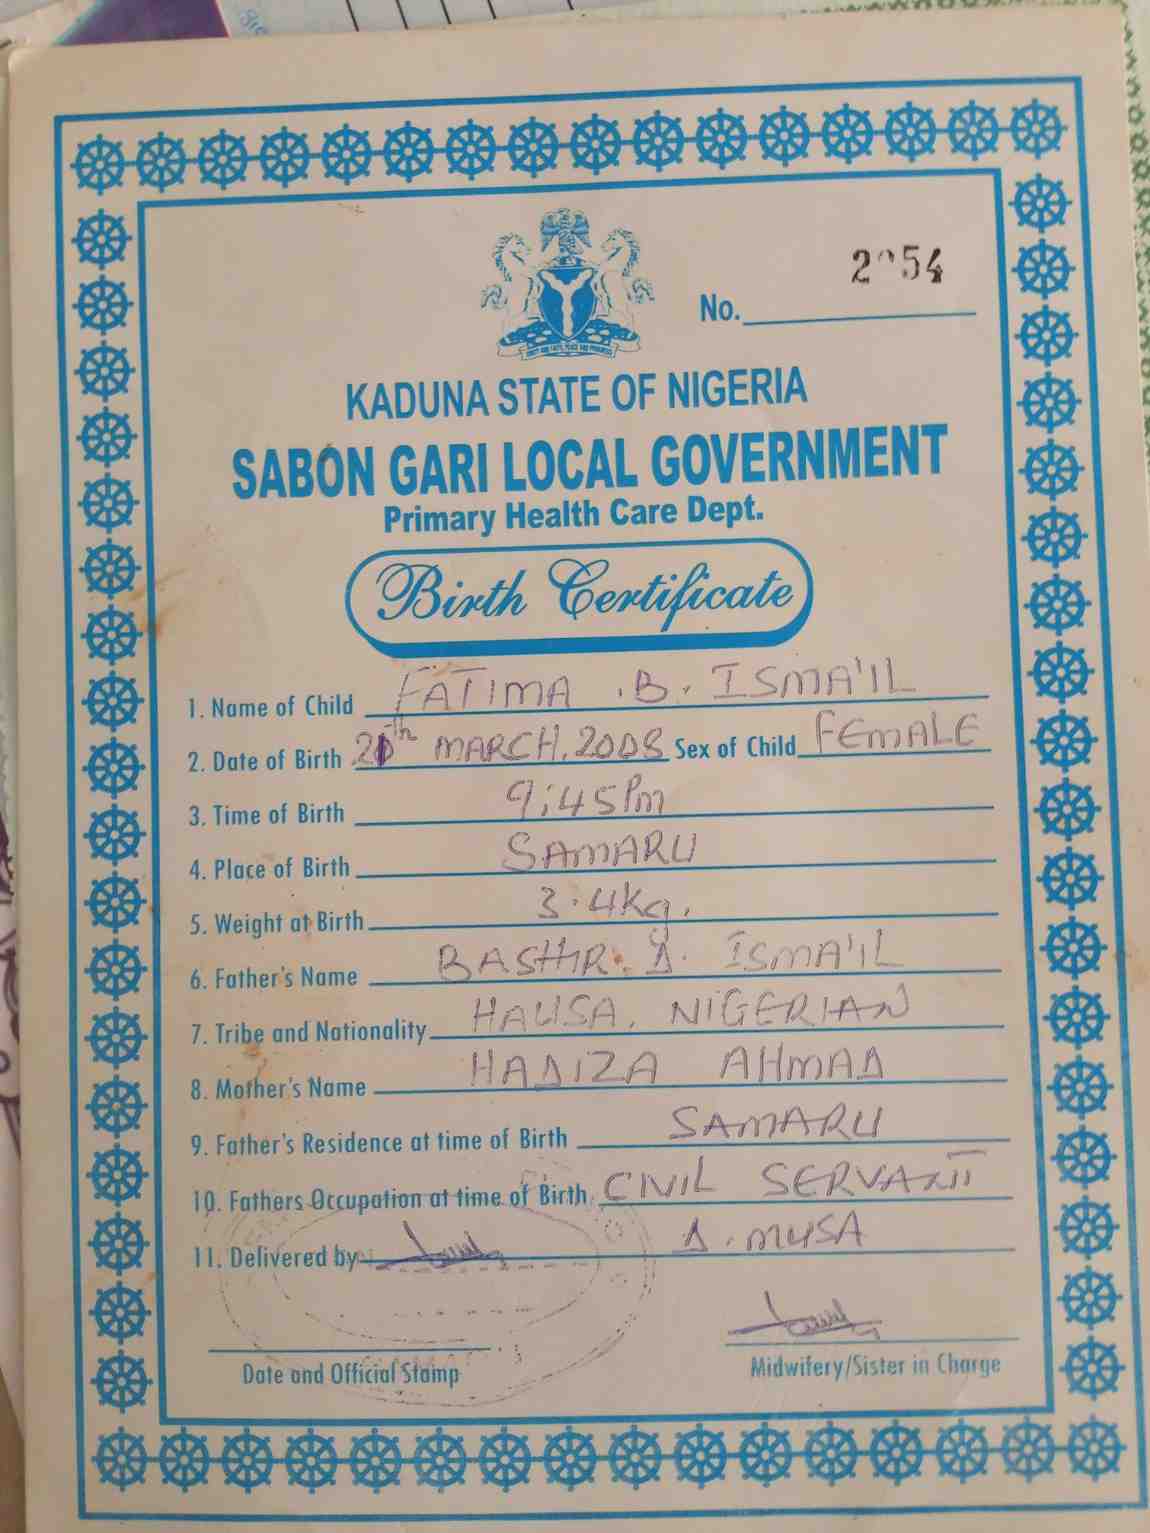 No.
KADUNA STATE OF NIGERIA
SABON GARI LOCAL GOVERNMENT
Primary Health Care Dept.
Birth Certificate
1. Name of Child FATIMA .B. ISMA'IL
2. Date of Birth MARCH, 2008 Sex of Child FEMALE
3. Time of Birth 9:45Pm
4. Place of Birth SAMARU
5. Weight at Birth 3.4kg.
6. Father's Name BASHIR. D. ISMA'IL
7. Tribe and Nationality HAUSA, NIGERIAN
8. Mother's Name HADIZA AHMAD
9. Father's Residence at time of Birth SAMARU
10. Fathers Occupation at time of Birth CIVIL SERVANT
11. Delivered by D. MUSA
Date and Official Stamp
Midwifery/Sister in Charge